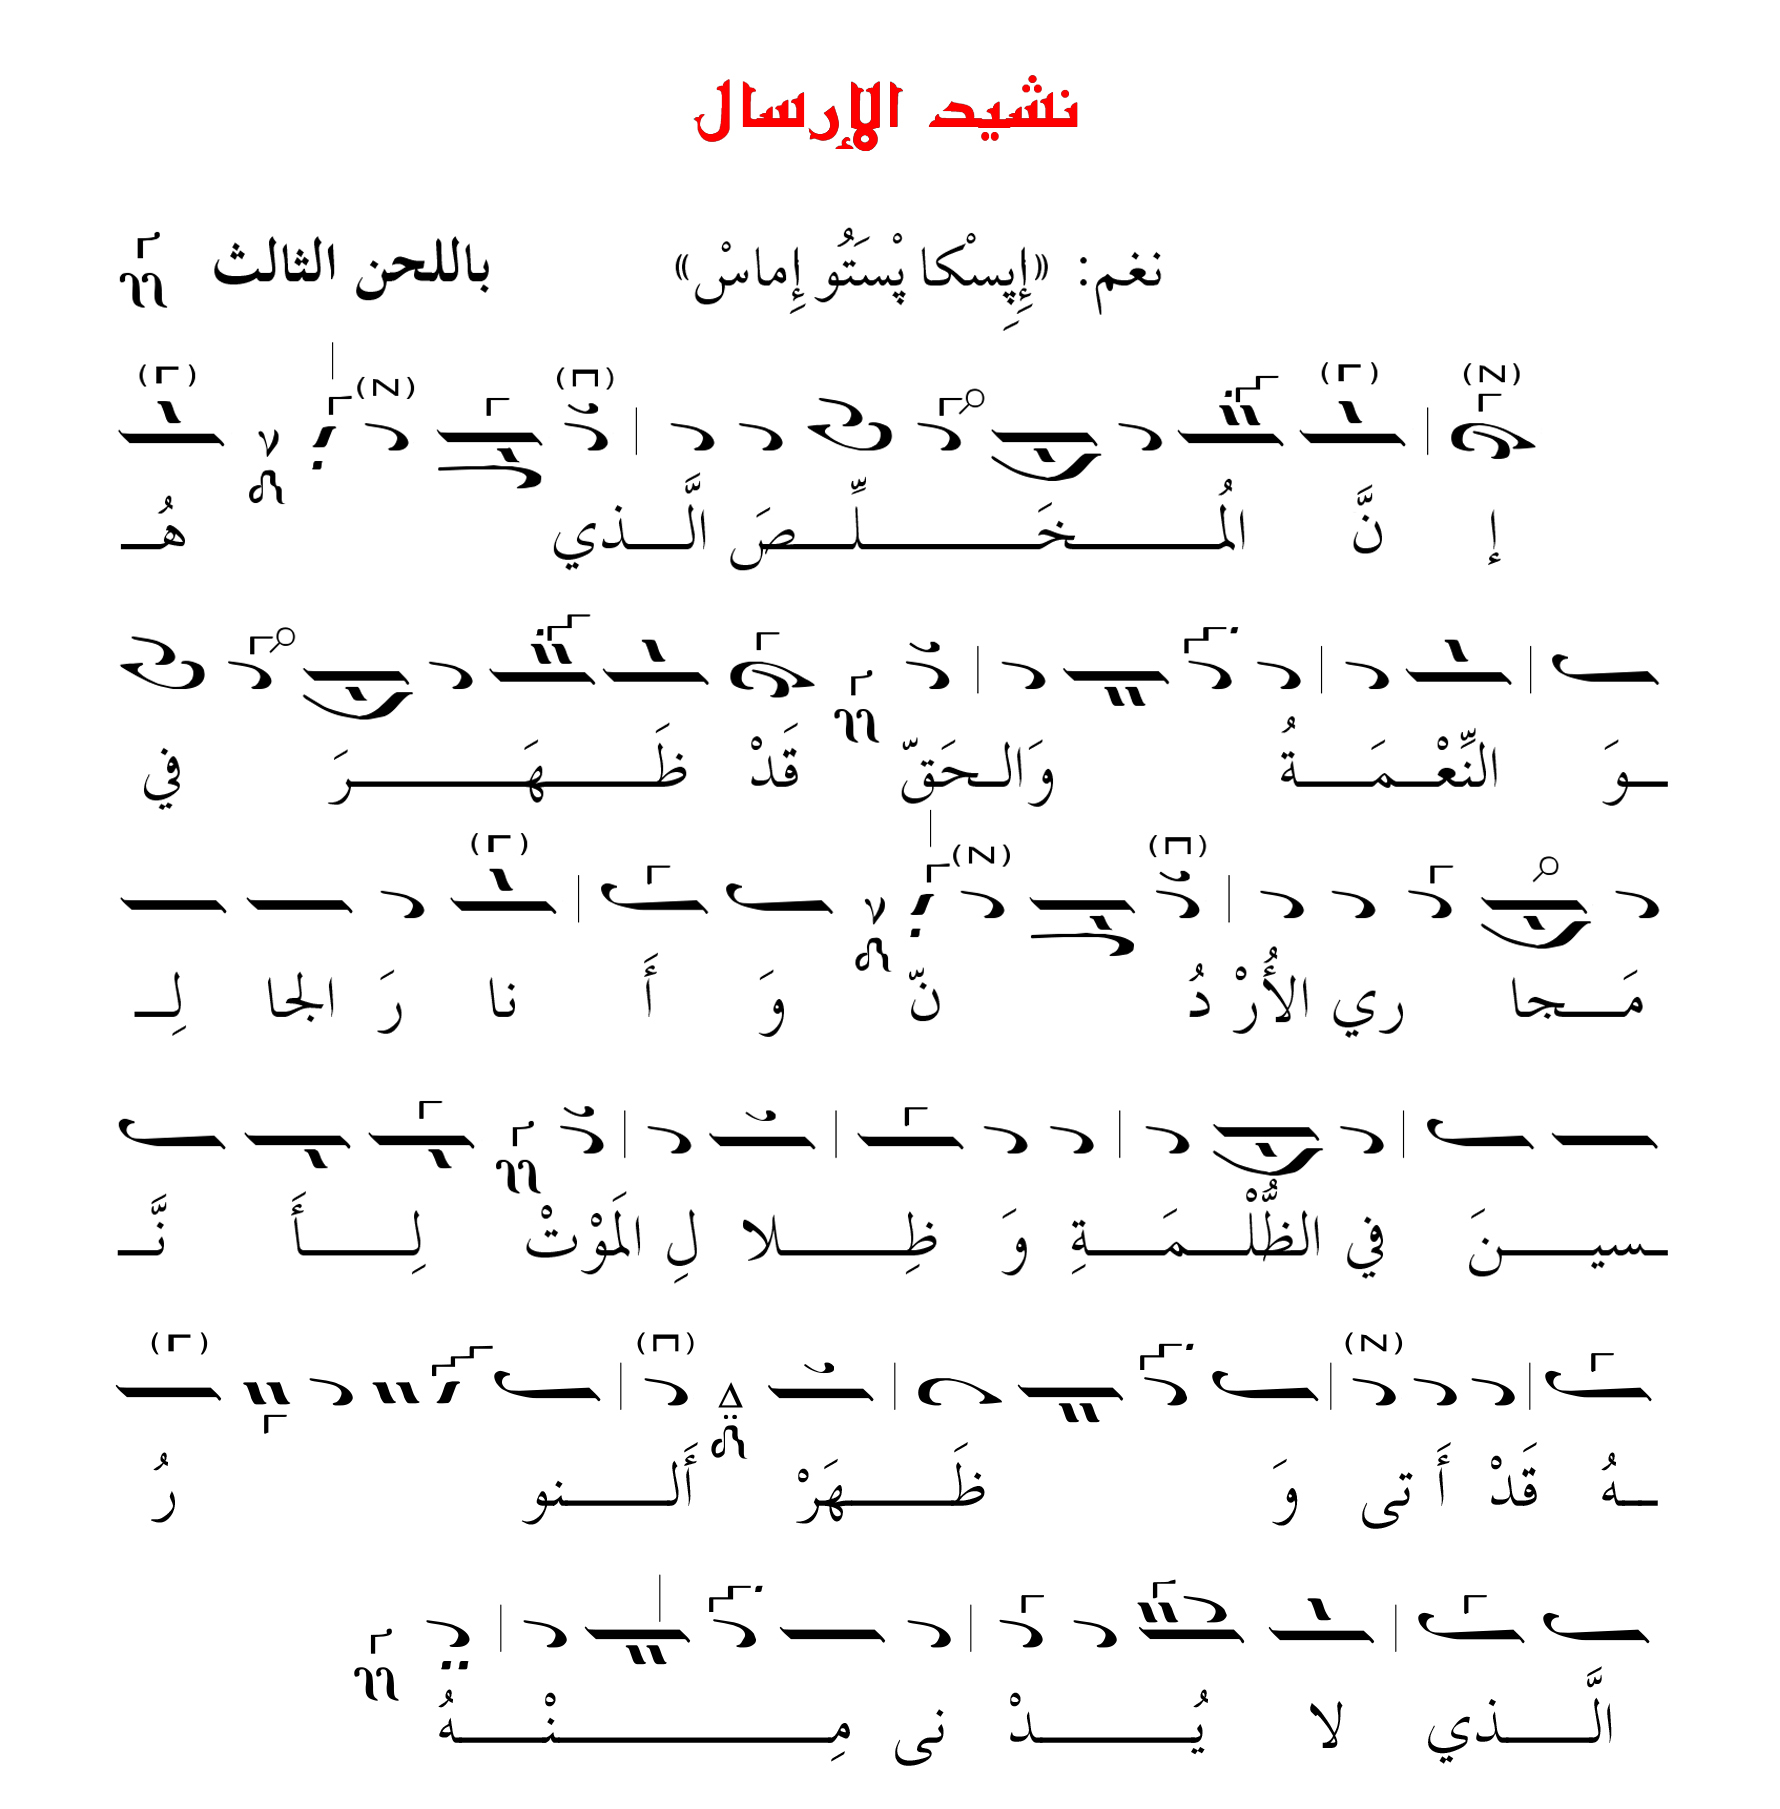 نشيد الإرسال
نغم: «إِپِسْكا پْسَتُو إِماسْ» باللحن الثالث
إ نَّ الُمـخَـلِّـصَ الَّـذي هُـ
ـوَ النِّعْـمَـةُ وَالـحَقّ قَدْ ظَـهَـرَ في
مَـجا ري الأُرْ دُ نّ وَ أَ نا رَ الجا لِـ
ـسيـنَ في الظُّلْـمَـةِ وَ ظِـلا لِ الَموْتْ لِـأَ نَّـ
ـهُ قَدْ أَ تى وَ ظَـهَرْ أَلـنو رُ
الَّـذي لا يُـدْ نى مِـنْـهُ